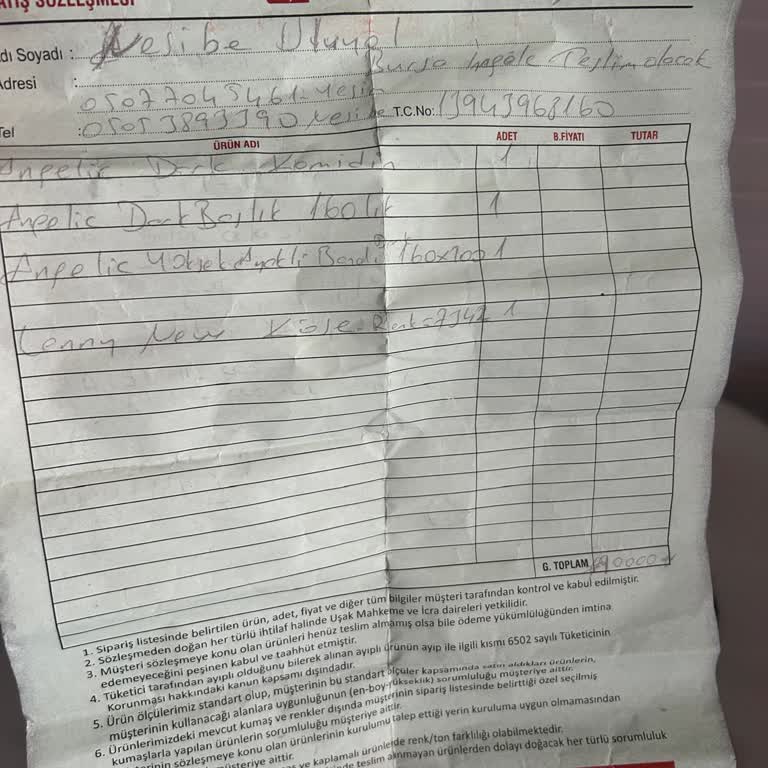 SATIŞ SÖZLEŞMESİ
Adı Soyadı : Nesibe
Adresi : Bursa Teslim olacak
0507 7045461 Yesim
Tel : 0505 3893390 Nesibe T.C.No: 13943968160
ÜRÜN ADI ADET B.FİYATI TUTAR
Angelic Dark Komidin 1
Angelic Dark Başlık 160 lık 1
Angelic Yüksek Ayaklı 160x200 1
Lenny New Köşe Renk=7342 1
G. TOPLAM
1. Sipariş listesinde belirtilen ürün, adet, fiyat ve diğer tüm bilgiler müşteri tarafından kontrol ve kabul edilmiştir.
2. Sözleşmeden doğan her türlü ihtilaf halinde Uşak Mahkeme ve İcra daireleri yetkilidir.
3. Müşteri sözleşmeye konu olan ürünleri henüz teslim almamış olsa bile ödeme yükümlülüğünden imtina
edemeyeceğini peşinen kabul ve taahhüt etmiştir.
4. Tüketici tarafından ayıplı olduğunu bilerek alınan ayıplı ürünün ayıp ile ilgili kısmı 6502 sayılı Tüketicinin
Korunması hakkındaki kanun kapsamı dışındadır.
5. Ürün ölçülerimiz standart olup, müşterinin bu standart ölçüler kapsamında satın aldıkları ürünlerin,
müşterinin kullanacağı alanlara uygunluğunun (en-boy-yükseklik) sorumluluğu müşteriye aittir.
6. Ürünlerimizdeki mevcut kumaş ve renkler dışında müşterinin sipariş listesinde belirttiği özel seçilmiş
kumaşlarla yapılan ürünlerin sorumluluğu müşteriye aittir.
sözleşmeye konu olan ürünlerin kurulumu talep ettiği yerin kuruluma uygun olmamasından
müşteriye aittir.
ve kaplamalı ürünlerde renk/ton farklılığı olabilmektedir.
teslim alınmayan ürünlerden dolayı doğacak her türlü sorumluluk